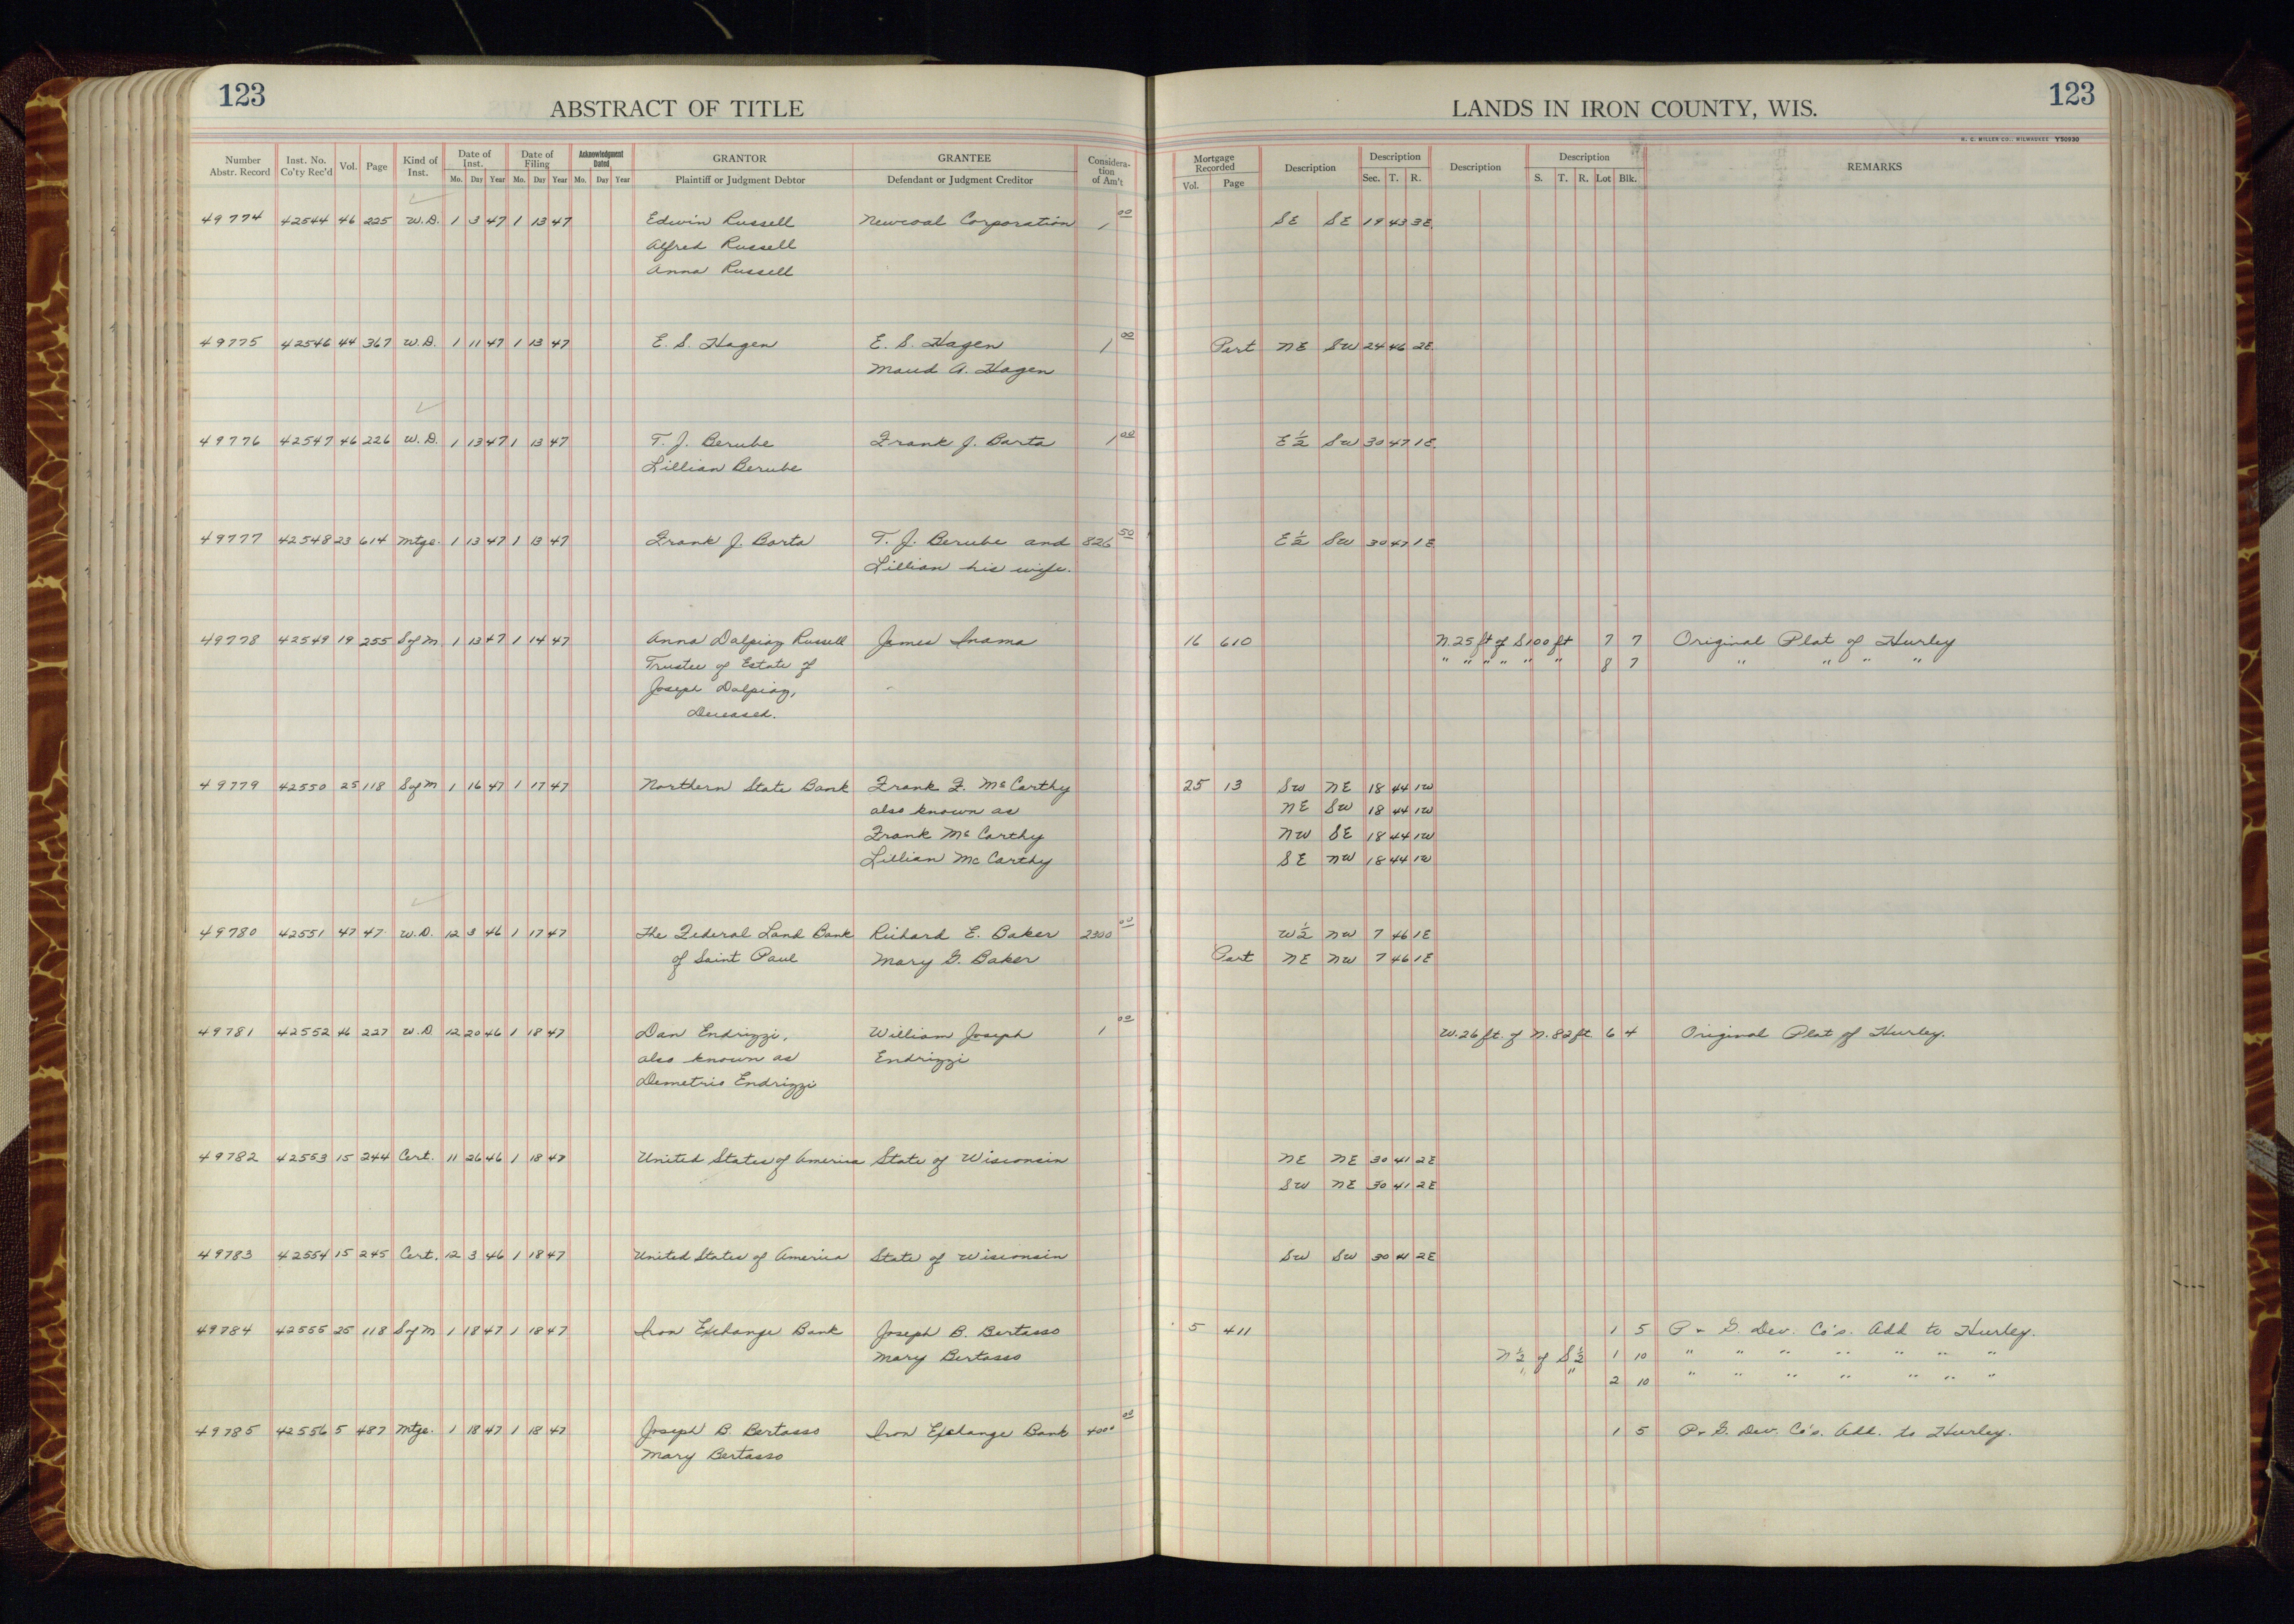 123
ABSTRACT OF TITLE
LANDS IN IRON COUNTY, WIS.
123
H. C. MILLER CO., MILWAUKEE Y50930
Number Abstr. Record Inst. No. Co'ty Rec'd Vol. Page Kind of Inst. Date of Inst. Mo. Day Year Date of Filing Mo. Day Year Acknowledgment Dated Mo. Day Year GRANTOR Plaintiff or Judgment Debtor GRANTEE Defendant or Judgment Creditor Considera-tion of Am't Mortgage Recorded Vol. Page Description Description Sec. T. R. Description Description S. T. R. Lot Blk. REMARKS
49774 42544 46 225 W.D. 1 3 47 1 13 47 Edwin Russell Newcoal Corporation 1 00 SE SE 19 43 3E
Alfred Russell
Anna Russell
49775 42546 44 367 W.D. 1 11 47 1 13 47 E. S. Hagen E. S. Hagen 1 00 Part NE SW 24 46 2E
Maud A. Hagen
49776 42547 46 226 W.D. 1 13 47 1 13 47 T. J. Berube Frank J. Barta 1 00 E½ SW 30 47 1E
Lillian Berube
49777 42548 23 614 Mtge. 1 13 47 1 13 47 Frank J. Barta T. J. Berube and 826 50 E½ SW 30 47 1E
Lillian his wife.
49778 42549 19 255 S of M 1 13 47 1 14 47 Anna Dalpiaz Russell James Inama 16 610 N. 25 ft of S 100 ft 7 7 Original Plat of Hurley
Trustee of Estate of " " " " " " 8 7 " " " "
Joseph Dalpiaz,
Deceased.
49779 42550 25 118 S of M 1 16 47 1 17 47 Northern State Bank Frank F. McCarthy 25 13 SW NE 18 44 1W
also known as NE SW 18 44 1W
Frank McCarthy NW SE 18 44 1W
Lillian McCarthy SE NW 18 44 1W
49780 42551 47 47 W.D. 12 3 46 1 17 47 The Federal Land Bank Richard E. Baker 2300 00 W½ NW 7 46 1E
of Saint Paul Mary G. Baker Part NE NW 7 46 1E
49781 42552 46 227 W.D. 12 20 46 1 18 47 Dan Endrizzi, William Joseph 1 00 W. 26 ft. of N. 82 ft 6 4 Original Plat of Hurley.
also known as Endrizzi
Demetrio Endrizzi
49782 42553 15 244 Cert. 11 26 46 1 18 47 United States of America State of Wisconsin NE NE 30 41 2E
SW NE 30 41 2E
49783 42554 15 245 Cert. 12 3 46 1 18 47 United States of America State of Wisconsin SW SW 30 41 2E
49784 42555 25 118 S of M 1 18 47 1 18 47 Iron Exchange Bank Joseph B. Bertasso 5 411 1 5 P & G. Dev. Co's. Add to Hurley.
Mary Bertasso N½ of S½ 1 10 " " " " " " "
" " 2 10 " " " " " " "
49785 42556 5 487 Mtge. 1 18 47 1 18 47 Joseph B. Bertasso Iron Exchange Bank 4000 00 1 5 P & G. Dev. Co's. Add. to Hurley.
Mary Bertasso